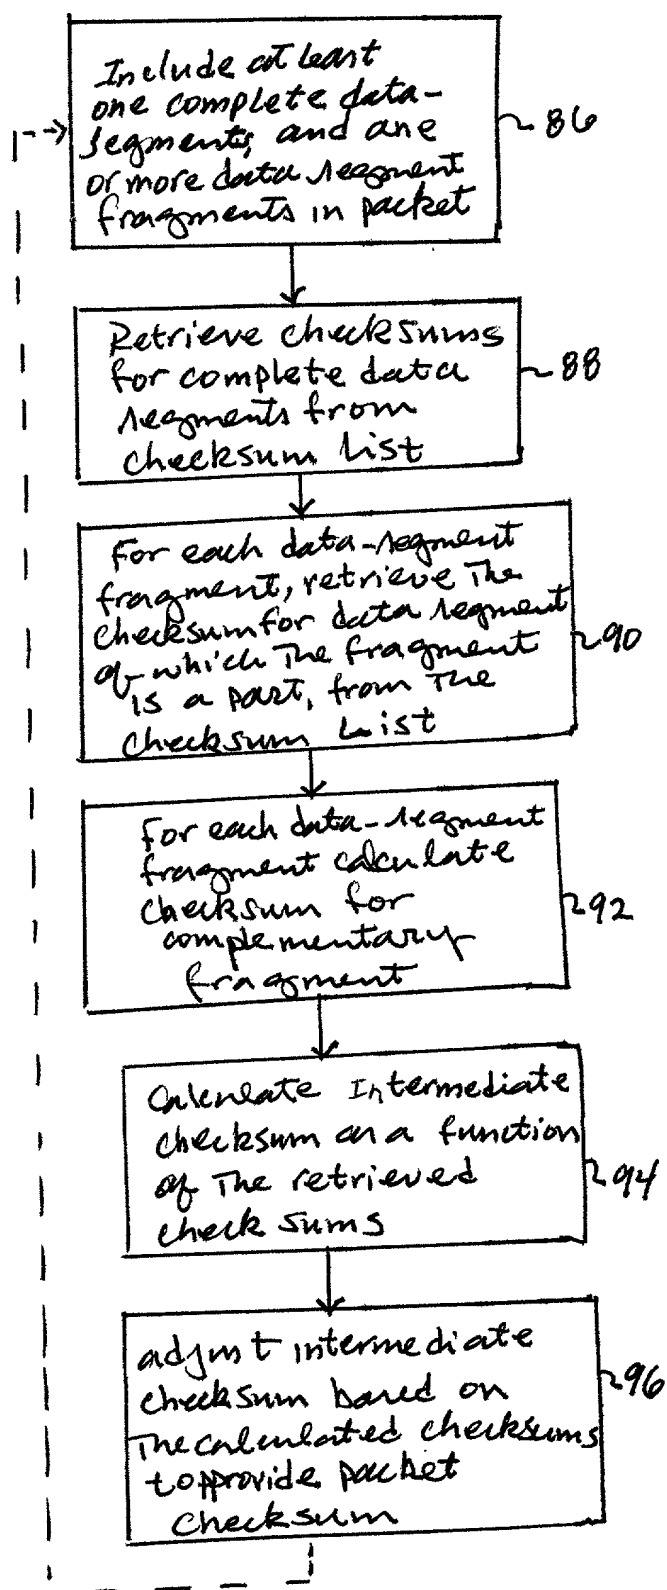 Include at least
one complete data-
segments, and one
or more data segment
fragments in packet
86
Retrieve checksums
for complete data
segments from
checksum list
88
For each data-segment
fragment, retrieve The
checksum for data segment
of which The fragment
is a part, from The
checksum List
90
For each data-segment
fragment calculate
checksum for
complementary
fragment
92
Calculate Intermediate
checksum as a function
of The retrieved
check sums
94
adjust intermediate
checksum based on
The calculated checksums
to provide packet
checksum
96